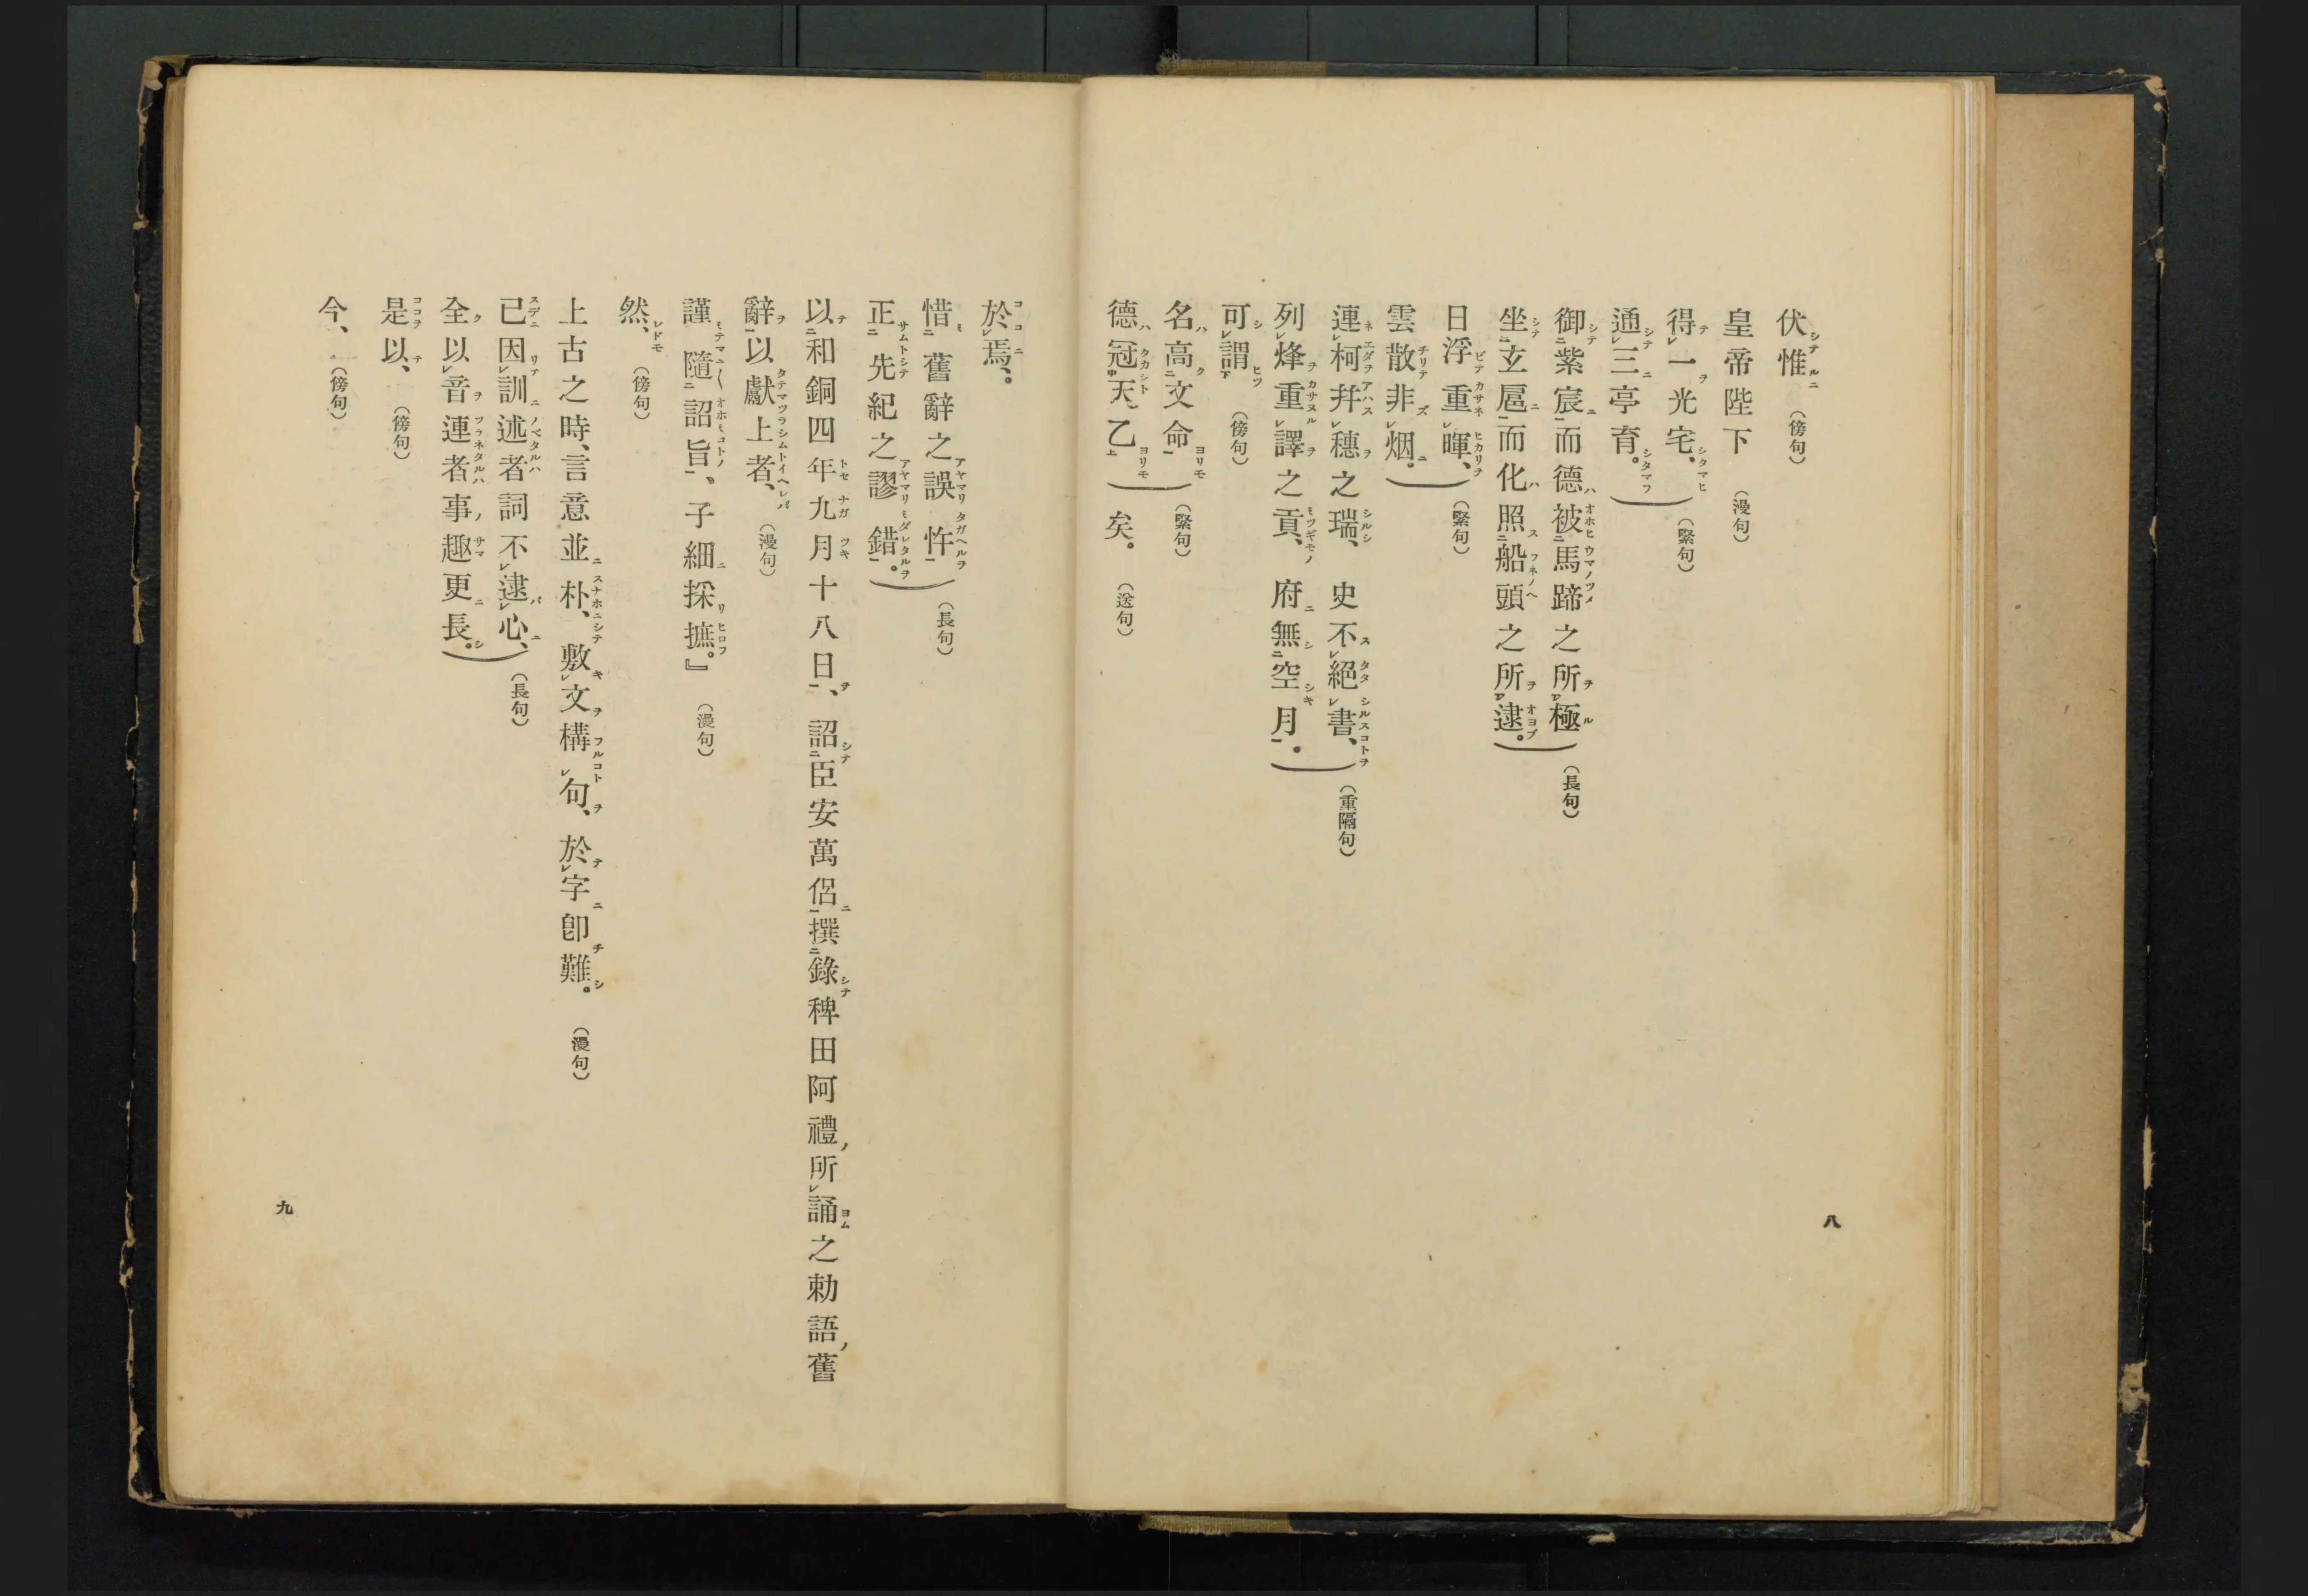 伏惟（傍句）
皇帝陛下（漫句）
得一光宅、（緊句）
通三亭育。
御紫宸而德被馬蹄之所極（長句）
坐玄扈而化照船頭之所逮。
日浮重暉、（緊句）
雲散非烟。
連柯幷穗之瑞、史不絕書、（重隔句）
列烽重譯之貢、府無空月。
可謂（傍句）
名高文命（緊句）
德冠天乙矣。（送句）
八
於焉、。
惜舊辭之誤忤（長句）
正先紀之謬錯。
以和銅四年九月十八日、詔臣安萬侶撰錄稗田阿禮所誦之勅語舊
辭以獻上者、（漫句）
謹隨詔旨、子細採摭。』（漫句）
然、（傍句）
上古之時、言意並朴、敷文構句、於字卽難。（漫句）
已因訓述者詞不逮心、（長句）
全以音連者事趣更長。
是以、（傍句）
今、（傍句）
九